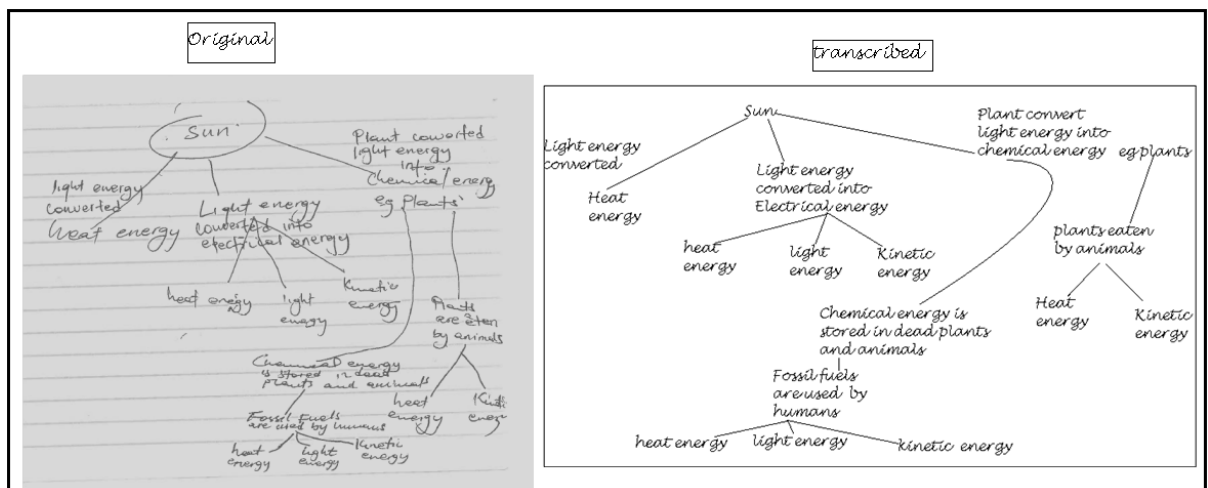 Original
Sun
Plant coverted
light energy
into
Chemical energy
eg Plants
light energy
converted
heat energy
Light energy
converted into
electrical energy
heat energy
light
energy
Kinetic
energy
Plants
are eten
by animals
Chemical energy
is stored in dead
plants and animals
heat
energy
Fossil Fuels
are used by humans
heat
energy
light
energy
Kinetic
energy
transcribed
Sun
Plant convert
light energy into
chemical energy
eg plants
Light energy
converted
Heat
energy
Light energy
converted into
Electrical energy
heat
energy
light
energy
Kinetic
energy
plants eaten
by animals
Heat
energy
Kinetic
energy
Chemical energy is
stored in dead plants
and animals
Fossil fuels
are used by
humans
heat energy
light energy
kinetic energy